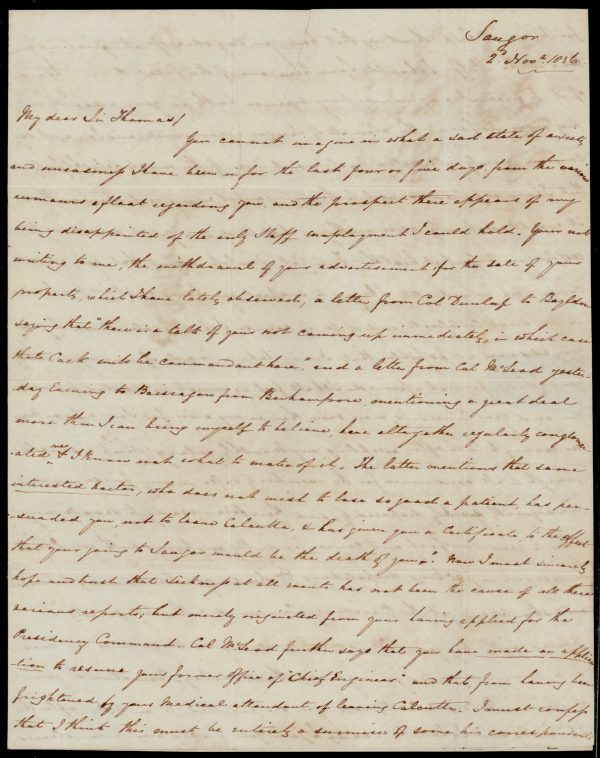 Saugor
2d. Novr. 1836
My dear Sir Thomas/
You cannot imagine in what a sad state of anxiety
and uneasiness I have been in for the last four or five days from the various
rumours afloat regarding you, and the prospect there appears of my
being disappointed of the only Staff employment I could hold. Your not
writing to me, the withdrawal of your advertisement for the sale of your
property, which I have lately observed, a letter from Col Dunlop to
saying that "there is a talk of your not coming up immediately, in which case
that Cock will be commandant here," and a letter from Col McLeod yester-
-day Evening to from Berhampore, mentioning a great deal
more than I can bring myself to believe, have altogether regularly conglomer
-ated me & I know not what to make of it. The latter mentions that some
interested Doctor, who does not wish to lose so good a patient, has per-
-suaded you not to leave Calcutta, & has given you a Certificate to the effect
that your going to Saugor would be the death of you." Now I most sincerely
hope and trust that Sickness at all events has not been the cause of all these
various reports; but merely originated from your having applied for the
Presidency Command. Col McLeod further says that you have made an applica
-tion to resume your former Office of "Chief Engineer" and that from having been
frightened by your Medical attendant of leaving Calcutta. I must confess
that I think this must be entirely a surmise of some his correspondents